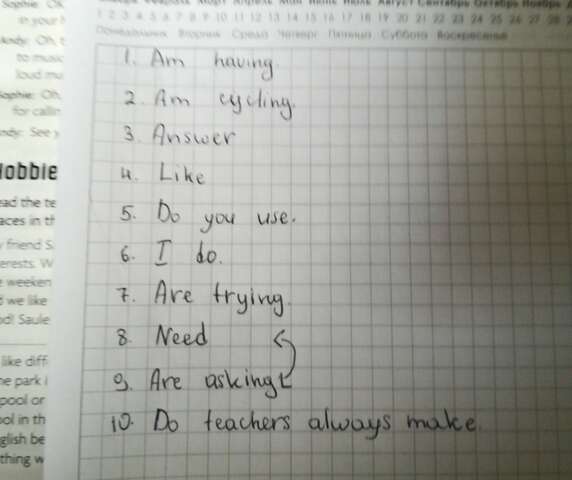 Sophie: Oh
in your
Andy: Oh, t
to music
loud mu
Sophie: Oh,
for callin
Andy: See y
Hobbie
ad the te
aces in th
friend S
erests. W
weeken
d we like
od! Saule
like diff
he park i
pool or
ol in th
glish be
thing w
Январь Февраль Март Апрель Май Июнь Июль Август Сентябрь Октябрь Ноябрь
1 2 3 4 5 6 7 8 9 10 11 12 13 14 15 16 17 18 19 20 21 22 23 24 25 26 27 28
Понедельник Вторник Среда Четверг Пятница Суббота Воскресенье
1. Am having.
2. Am cycling.
3. Answer
4. Like
5. Do you use.
6. I do.
7. Are trying.
8. Need
9. Are asking
10. Do teachers always make.